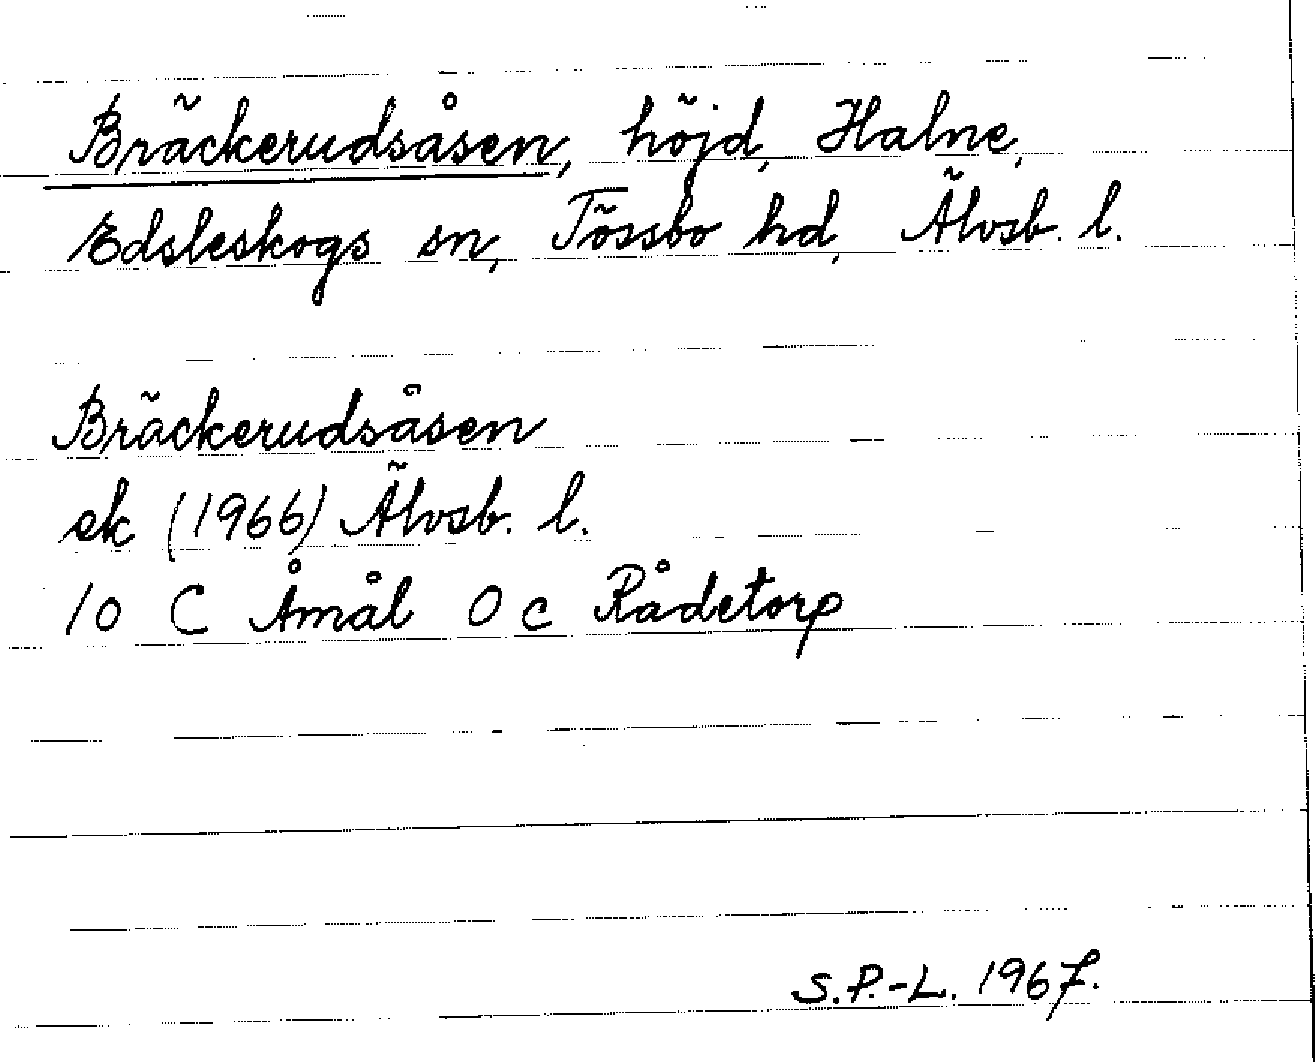 Bräckerudsåsen, höjd, Halne,
Edsleskogs sn, Tössbo hd, Älvsb. l.
Bräckerudsåsen
ek (1966) Älvsb. l.
10 C Åmål 0 c Rådetorp
S.P.-L. 1967.